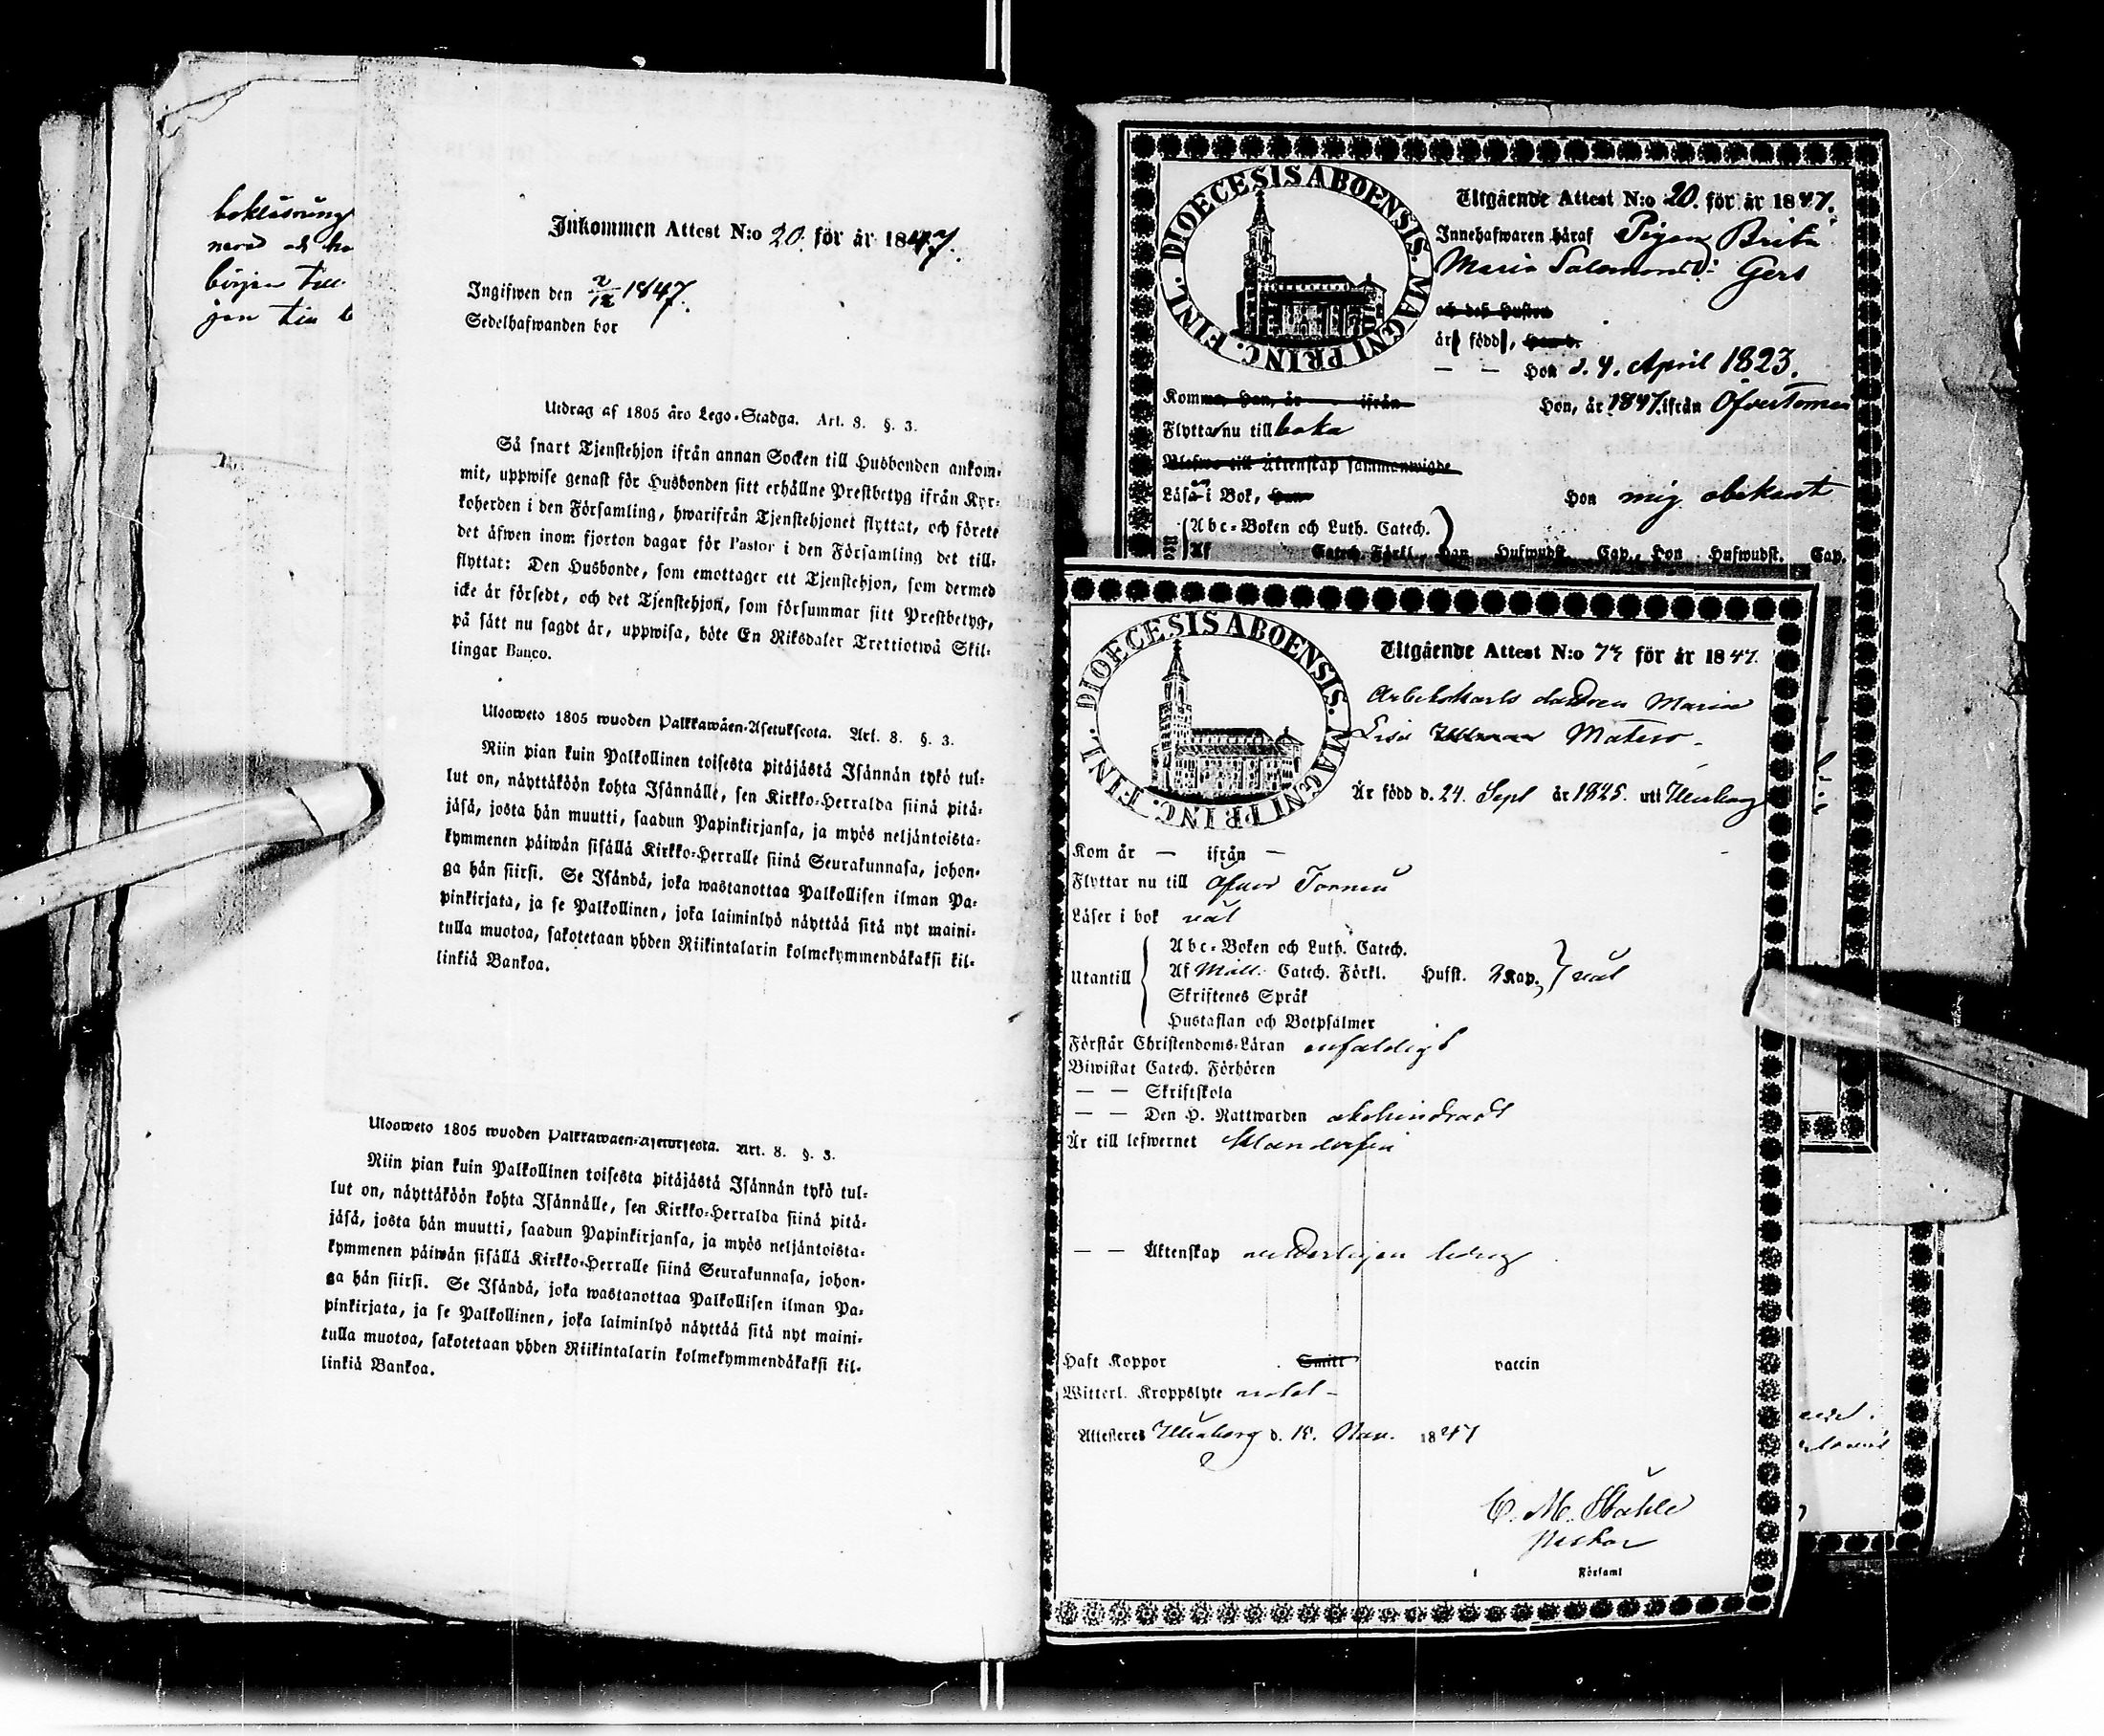 boklásning
börjen till
Inkommen Attest N:o 20. för år 1847.
Ingifwen den 2/12 1847.
Sedelhafwanden bor
Utdrag af 1805 åro Lego-Stadga. Art. 8. §. 3.
Så snart Tjenstehjon ifrån annan Socken till Husbonden ankom-
mit, uppwise genast för Husbonden sitt erhållne Prestbetyg ifrån Kyr-
koherden i den Församling, hwarifrån Tjenstehjonet flyttat, och förete
det äfwen inom fjorton dagar för Pastor i den Församling det till-
flyttat: Den Husbonde, som emottager ett Tjenstehjon, som dermed
icke är försedt, och det Tjenstehjon, som försummar sitt Prestbetyg,
på sätt nu sagdt är, uppwisa, böte En Riksdaler Trettiotwå Skil-
lingar Banco.
Ulosweto 1805 wuoden Palkkawäen-Asetuksesta. Art. 8. §. 3.
Niin pian kuin Palkollinen toisesta pitäjästä Isännän tykö tul-
lut on, näyttäköön kohta Isännälle, sen Kirkko-Herralda siinä pitä-
jäsä, josta hän muutti, saadun Papinkirjansa, ja myös neljäntoista-
kymmenen päiwän sisällä Kirkko-Herralle siinä Seurakunnasa, johon-
ga hän siirsi. Se Isändä, joka wastanottaa Palkollisen ilman Pa-
pinkirjata, ja se Palkollinen, joka laiminlyö näyttää sitä nyt maini-
tulla muotoa, sakotetaan yhden Riikintalarin kolmekymmendäkaksi kil-
linkiä Bankoa.
Ulosweto 1805 wuoden Palkkawäen-Asetuksesta. Art. 8. §. 3.
Niin pian kuin Palkollinen toisesta pitäjästä Isännän tykö tul-
lut on, näyttäköön kohta Isännälle, sen Kirkko-Herralda siinä pitä-
jäsä, josta hän muutti, saadun Papinkirjansa, ja myös neljäntoista-
kymmenen päiwän sisällä Kirkko-Herralle siinä Seurakunnasa, johon-
ga hän siirsi. Se Isändä, joka wastanottaa Palkollisen ilman Pa-
pinkirjata, ja se Palkollinen, joka laiminlyö näyttää sitä nyt maini-
tulla muotoa, sakotetaan yhden Riikintalarin kolmekymmendäkaksi kil-
linkiä Bankoa.
DIOECESIS ABOENSIS. MAGNI PRINC. FINL.
Utgående Attest N:o 20. för år 1847.
Innehafwaren häraf Pigan Brita
Maria Salomonsd: Gers
och des Hustru
är född, Han d.
— — Hon d. 4. April 1823.
Komma, Han, år — ifrån Hon, år 1847. ifrån Öfvertorneå
Flytta nu till baka
Blefwo till Äktenskap sammanwigde
Läsa i Bok, Han Hon mig obekant
Abc-Boken och Luth. Catech.
Af Catech. Förkl., Han Hufwudst. Cap., Hon Hufwudst. Cap.
DIOECESIS ABOENSIS. MAGNI PRINC. FINL.
Utgående Attest N:o 77 för år 1847.
Arbetskarls dottren Maria
Lisa Matero
Är född d. 24. Sept år 1825. uti Uleåborg
Kom år — ifrån —
Flyttar nu till Öfver Torneå
Läser i bok väl
Utantill
Abc-Boken och Luth. Catech.
Af Möll. Catech. Förkl. Hufst. 3 Kap. väl
Skriftenes Språk
Hustaflan och Botpsalmer
Förstår Christendoms-Läran enfaldigt
Biwistat Catech. Förhören
— — Skriftskola
— — Den H. Nattwarden obehindradt
Är till lefwernet klanderfri
— — Äktenskap ledig
Haft Koppor Smitt vaccin
Witterl. Kroppslyte intet
Attesteras Uleåborg d. 15. Nov. 1847
C. M. Ståhle
Pastor
i Församl